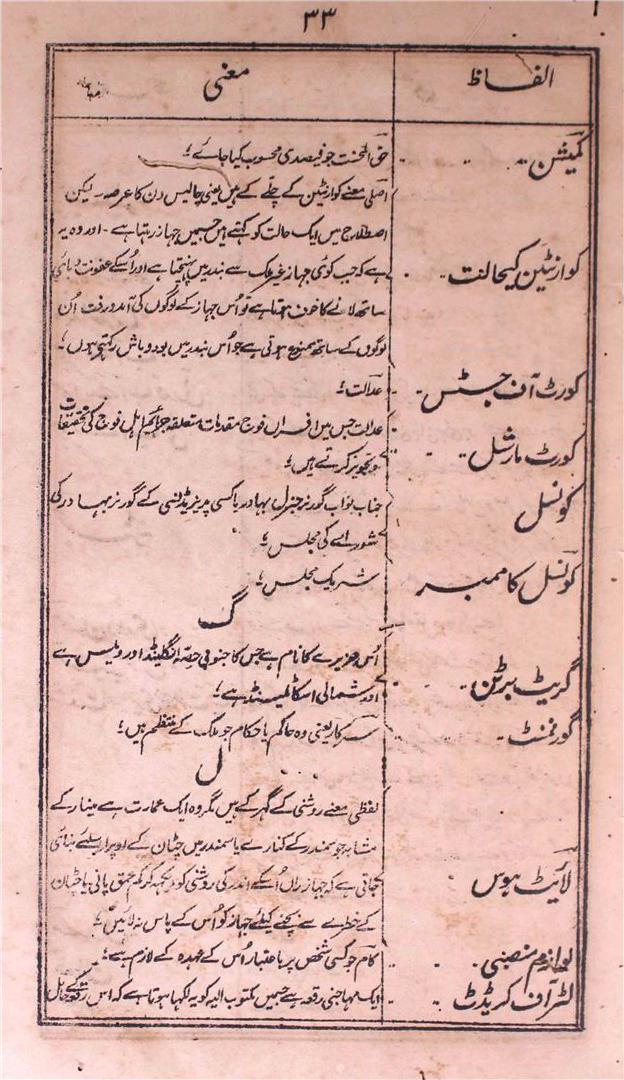 ۳۳
الفاظ معنی
کمیشن حق المحنت جو فیصدی محسوب کیا جائے؛
اصلی معنے کوارنٹین کے چلّے کے ہیں یعنی چالیس دن کا عرصہ۔ لیکن
اصطلاح میں ایک حالت کو کہتے ہیں جسمیں جہاز رہتا ہے۔ اور وہ یہ
کوارنٹین کیحالت ہے کہ جب کوئی جہاز غیر ملک سے بندر میں پہنچتا ہے اور اُسکے عفونت وبائی
ساتھ لانے کا خوف ہوتا ہے تو اُس جہاز کے لوگوں کی آمدورفت اُن
لوگوں کے ساتھ ممنوع ہوتی ہے جو اُس بندر میں بودوباش رکھتی ہوں؛
کورٹ آف جسٹس عدالت؛
کورٹ مارشل عدالت جس میں افسران فوج مقدمات متعلقہ جرائم اہل فوج کی تحقیقات
و تجویز کرتے ہیں؛
کونسل جناب نواب گورنر جنرل بہادر یا کسی پریزیڈنسی کے گورنر بہادر کی
شورے کی مجلس؛
کونسل کا ممبر شریک مجلس؛
گ
گریٹ برٹن اُس جزیرے کا نام ہے جس کا جنوبی حصّہ انگلینڈ اور ویلس ہے
اور شمالی اسکاٹلینڈ ہے؛
گورنمنٹ سرکار یعنی وہ حاکم یا حکام جو ملک کے منتظم ہیں؛
ل
لفظی معنے روشنی کے گھر کے ہیں مگر وہ ایک عمارت ہے مینار کے
مشابہ جو سمندر کے کنارے یا سمندر میں چٹان کے اوپر اسلئے بنائی
لائیٹ ہوس جاتی ہے کہ جہازراں اُسکے اندر کی روشنی کو دیکھکر کم عمق پانی یا چٹان
کے خطرے سے بچنے کیلئے جہاز کو اُس کے پاس نہ لائیں؛
لوازم منصبی کام جو کسی شخص پر باعتبار اُس کے عہدہ کے لازم ہے؛
لٹر آف کریڈٹ ایک مہاجنی رقعہ ہے جسمیں مکتوب الیہ کو یہ لکھا ہوتا ہے کہ اس رقعہ کے حامل